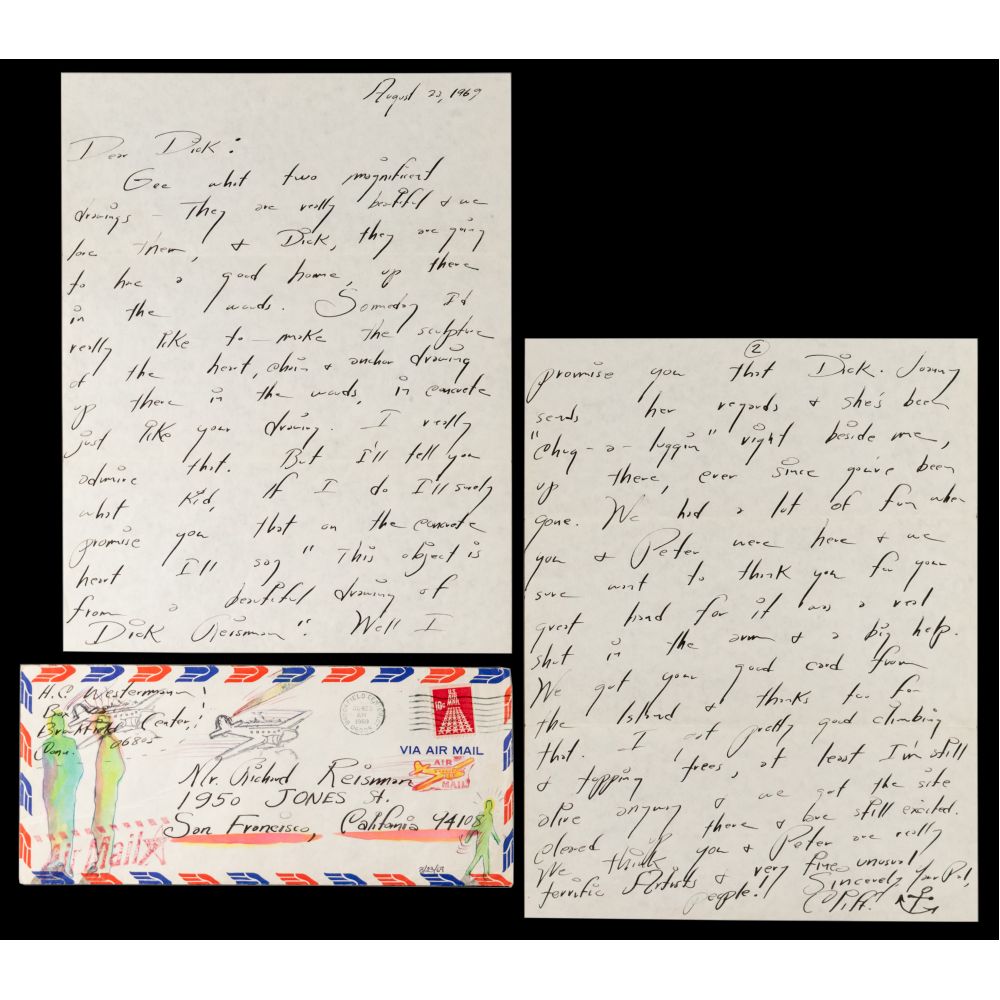 August 22, 1969
Dear Dick:
Gee what two magnificent
drawings - They are really beautiful & we
love them, & Dick, they are going
to have a good home, up there
in the woods. Someday I'd
really like to make the sculpture
of the heart, chain & anchor drawing
up there in the woods, in concrete
just like your drawing. I really
admire that. But I'll tell you
what Kid, if I do I'll surely
promise you that on the concrete
heart I'll say "This object is
from a beautiful drawing of
Dick Reisman". Well I
2
promise you that Dick. Joanny
sends her regards & she's been
"chug-a-luggin" right beside me,
up there, ever since you've been
gone. We had a lot of fun when
you & Peter were here & we
sure want to thank you for your
great hand for it was a real
shot in the arm & a big help.
We got your good card from
the Island & thanks for
that. I got pretty good climbing
& topping trees, at least I'm still
alive anyway & we got the site
cleared up there & are still excited.
We think you & Peter are really
terrific Artists & very fine unusual
people!
Sincerely Your Pal,
Cliff.
H.C. Westermann
Box
Brookfield Center,
Conn. 06805
BROOKFIELD CENTER
AUG 23
AM
1969
CONN.
U.S. AIR MAIL
10c
VIA AIR MAIL
AIR
MAIL
Mr. Richard Reisman
1950 JONES St.
San Francisco, California 94108
Air Mail
8/23/69